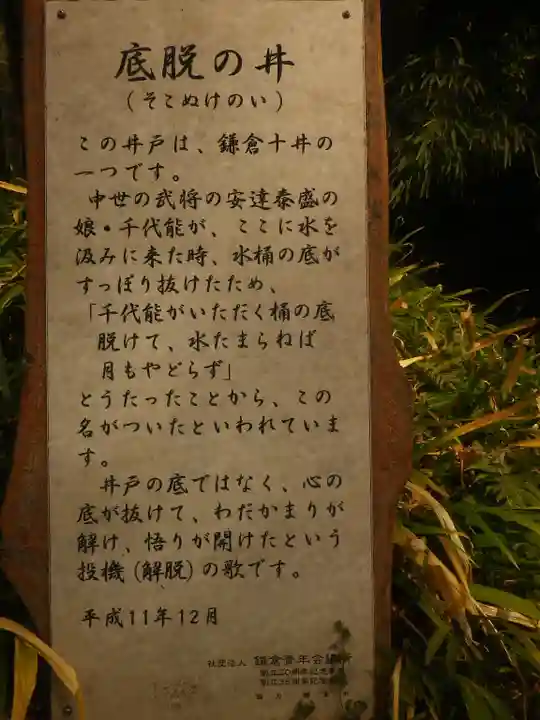 底脱の井
(そこぬけのい)
この井戸は、鎌倉十井の
一つです。
中世の武将の安達泰盛の
娘・千代能が、ここに水を
汲みに来た時、水桶の底が
すっぽり抜けたため、
「千代能がいただく桶の底
脱けて、水たまらねば
月もやどらず」
とうたったことから、この
名がついたといわれていま
す。
井戸の底ではなく、心の
底が抜けて、わだかまりが
解け、悟りが開けたという
投機(解脱)の歌です。
平成11年12月
社団法人 鎌倉青年会議所